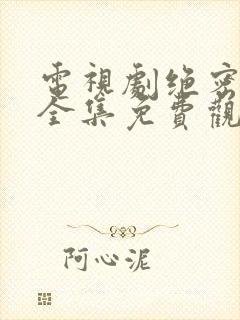 電視劇绝密
全集免費觀
阿心泥